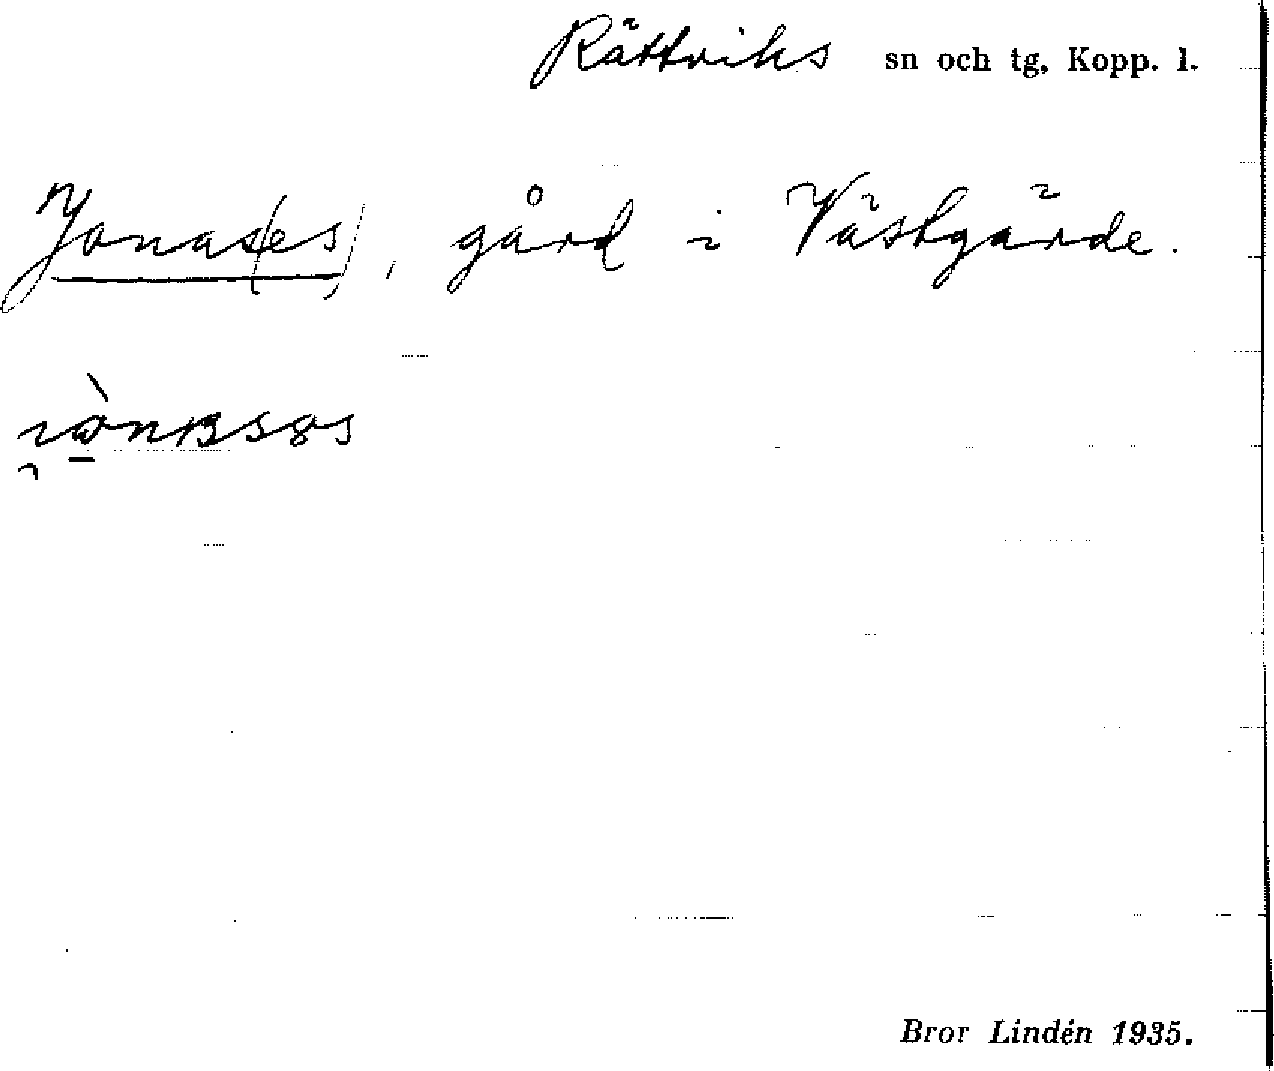 Rättviks sn och tg, Kopp. l.
Jonas(es), gård i Västgärde.
Bror Lindén 1935.